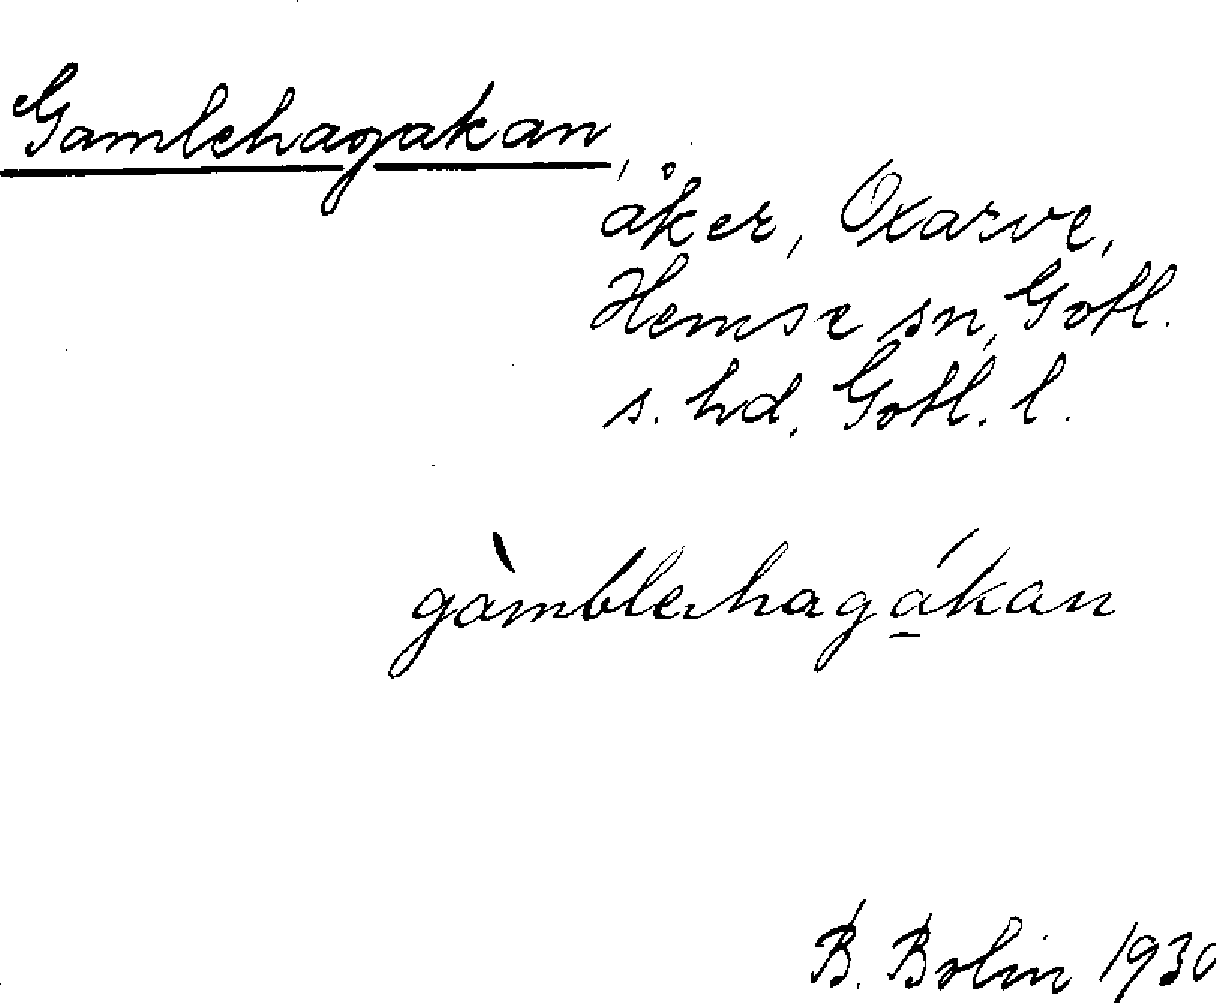 Gamlehagakan,
åker, Oxarve,
Hemse sn, Gotl.
s. hd. Gotl. l.
gàmblehagákan
B. Bolin 1930